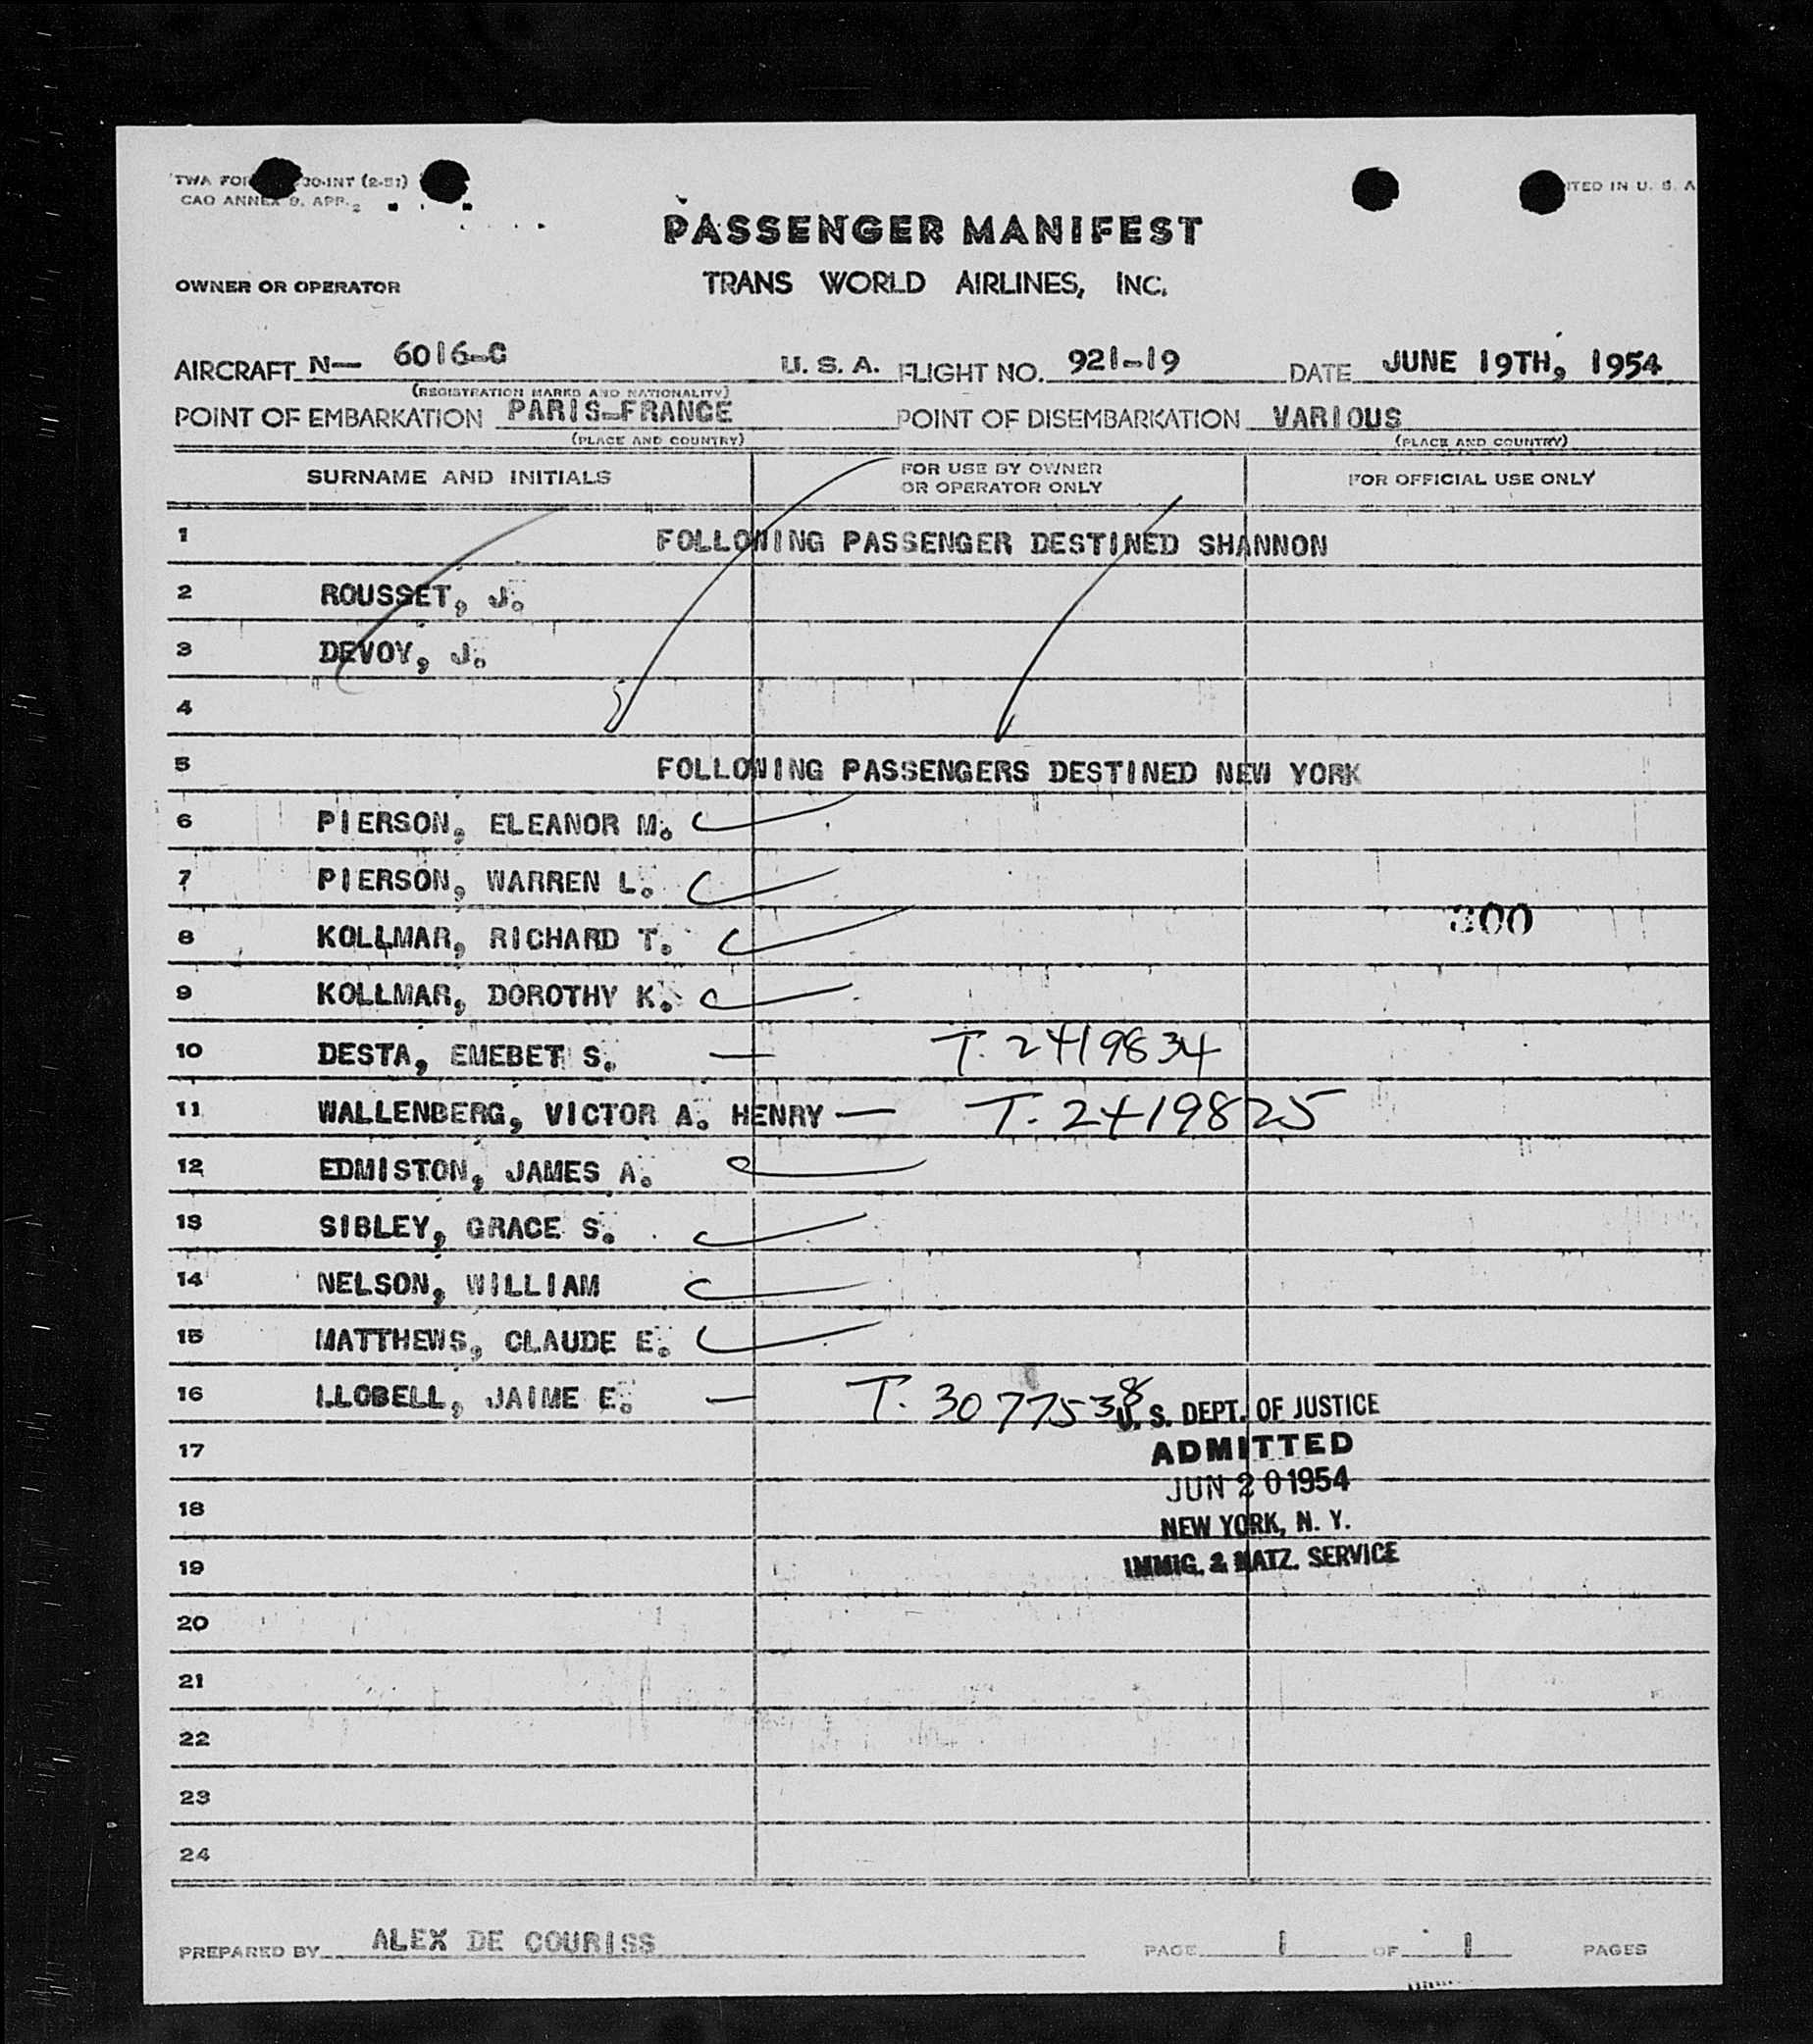 TWA FOR 30-INT (2-51)
CAO ANNEX 9, APP. 2
ITED IN U. S. A
PASSENGER MANIFEST
OWNER OR OPERATOR
TRANS WORLD AIRLINES, INC.
AIRCRAFT N— 6016-C U. S. A. FLIGHT NO. 921-19 DATE JUNE 19TH, 1954
(REGISTRATION MARKS AND NATIONALITY)
POINT OF EMBARKATION PARIS-FRANCE POINT OF DISEMBARKATION VARIOUS
(PLACE AND COUNTRY) (PLACE AND COUNTRY)
SURNAME AND INITIALS FOR USE BY OWNER OR OPERATOR ONLY FOR OFFICIAL USE ONLY
1 FOLLOWING PASSENGER DESTINED SHANNON
2 ROUSSET, J.
3 DEVOY, J.
4
5 FOLLOWING PASSENGERS DESTINED NEW YORK
6 PIERSON, ELEANOR M.
7 PIERSON, WARREN L.
300
8 KOLLMAR, RICHARD T.
9 KOLLMAR, DOROTHY K.
10 DESTA, EMEBET S. — T. 2419834
11 WALLENBERG, VICTOR A. HENRY — T. 2419825
12 EDMISTON, JAMES A.
13 SIBLEY, GRACE S.
14 NELSON, WILLIAM
15 MATTHEWS, CLAUDE E.
16 LLOBELL, JAIME E. — T. 3077538
U. S. DEPT. OF JUSTICE
17 ADMITTED
JUN 20 1954
18
NEW YORK, N. Y.
19 IMMIG. & NATZ. SERVICE
20
21
22
23
24
PREPARED BY ALEX DE COURISS PAGE 1 OF 1 PAGES